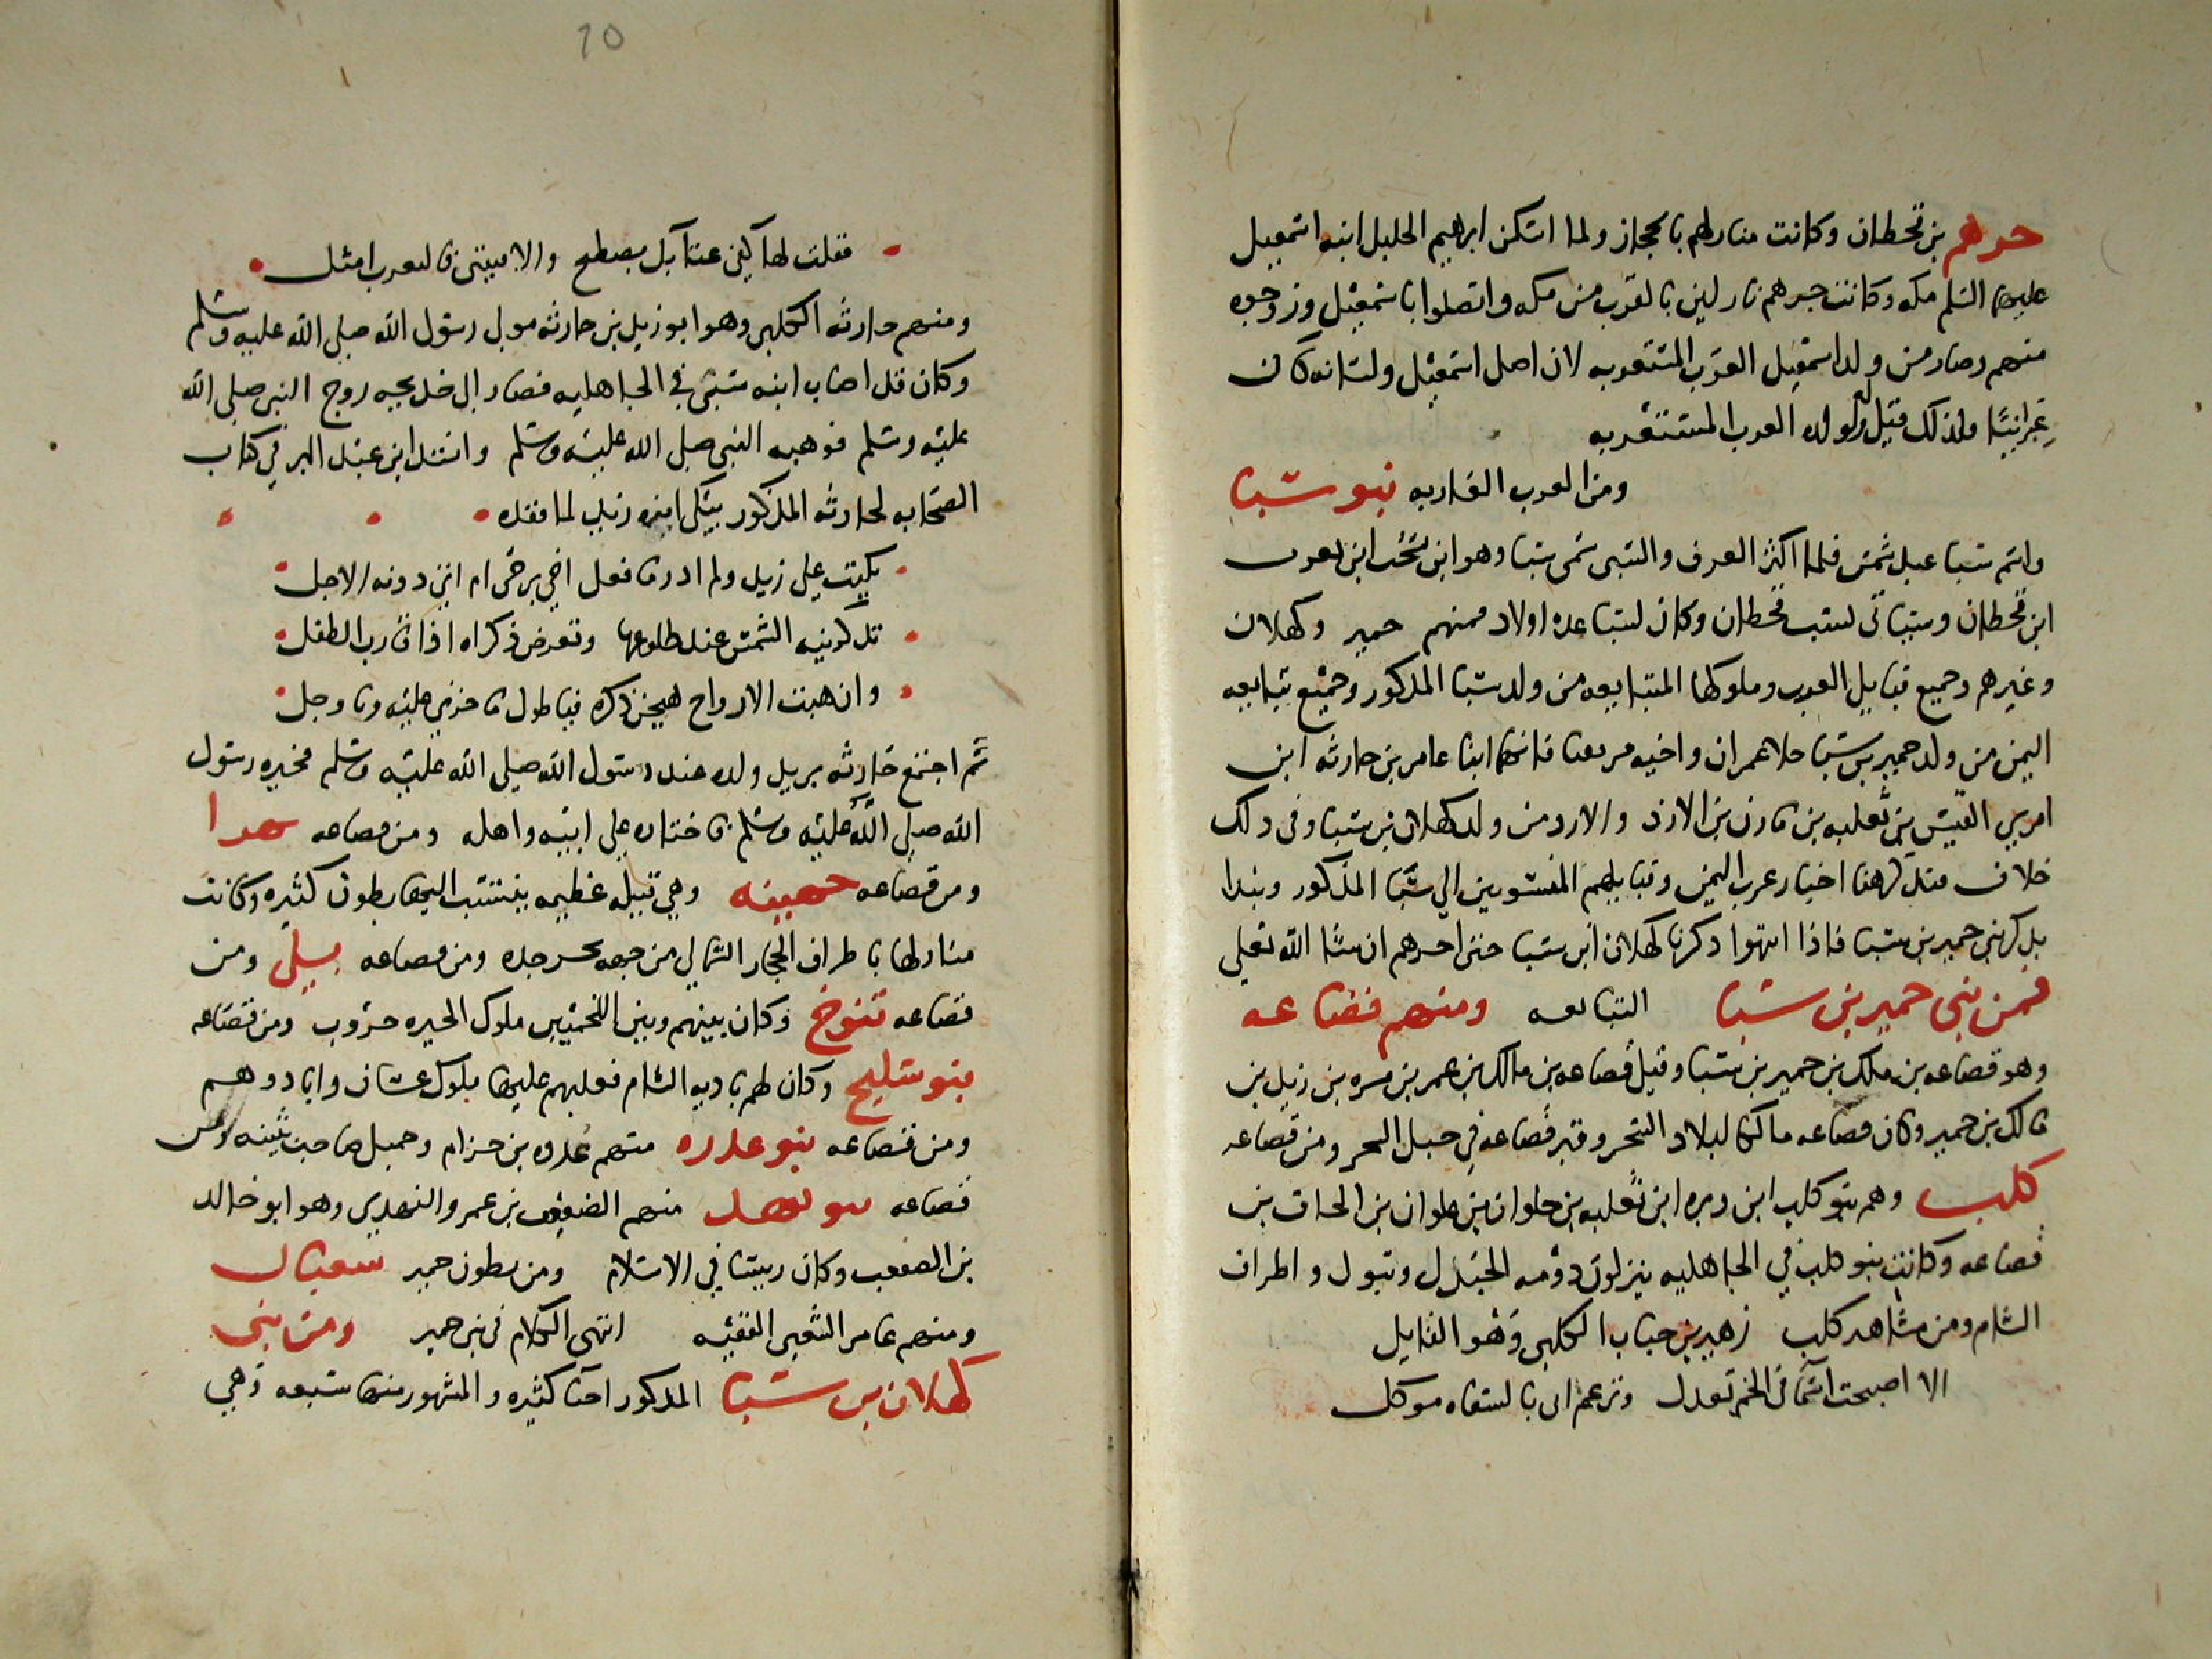 جرهم بن قحطان وكانت منازلهم بالحجاز ولما اسكن ابرهيم الخليل ابنه اسمعيل
عليهما السلم مكه وكانت جرهم نازلين بالقرب من مكه واتصلوا باسمعيل وزوجوه
منهم وصار من ولد اسمعيل العرب المستعربه لان اصل اسمعيل ولسانه كان
عبرانيا ولذلك قيل له ولولده العرب المستعربه
ومن العرب العاربه بنو سبا
واسم سبا عبد شمس فلما اكثر الغزو والسبى سمى سبا وهو ابن يشحب ابن يعرب
ابن قحطان وسياتى نسب قحطان وكان لسبا عده اولاد فمنهم حمير وكهلان
وغيرهم وجميع قبايل العرب وملوكها التبابعه من ولد سبا المذكور وجميع تبابعه
اليمن من ولد حمير بن سبا خلا عمران واخيه مزيقيا فانهما ابنا عامر بن حارثه ابن
امري القيس بن ثعلبه بن مازن بن الازد والازد من ولد كهلان بن سبا وفى ذلك
خلاف فنذكر هنا اخبار عرب اليمن وقبايلهم المنسوبين الي سبا المذكور ونبدا
بذكر بني حمير بن سبا فاذا انتهوا ذكرنا كهلان ابن سبا حتى اخرهم ان شا الله تعلى
فمن بني حمير بن سبا التبابعه ومنهم قضاعه
وهو قضاعه بن ملك بن حمير بن سبا وقيل قضاعه بن مالك بن عمر بن مره بن زيد بن
مالك بن حمير وكان قضاعه مالكا لبلاد الشحر وقبر قضاعه في جبل الشحر ومن قضاعه
كلب وهم بنو كلب ابن وبره ابن ثعلبه بن حلوان بن علوان بن الحاف بن
قضاعه وكانت بنو كلب في الجاهليه ينزلون دومه الجندل وتبوك واطراف
الشام ومن مشاهد كلب زهير بن جناب الكلبي وهو القايل
الا اصبحت اسما فى الخمر تعذل وتزعم انى بالسفاه موكل
10
فقلت لها كفى عتابك نصطبح والا فبينى فالتعرب امثل
ومنهم حارثه الكلبي وهو ابو زيد بن حارثه مولى رسول الله صلى الله عليه وسلم
وكان قد اصاب ابنه سبى في الجاهليه فصار الى خديجه زوج النبي صلى الله
عليه وسلم فوهبه النبي صلى الله عليه وسلم وانشد ابن عبد البر في كتاب
الصحابه لحارثه المذكور يبكي ابنه زيد لما فقده
بكيت على زيد ولم ادر ما فعل احي يرجى ام اتى دونه الاجل
تذكرنيه الشمس عند طلوعها وتعرض ذكراه اذا قارب الطفل
وان هبت الارواح هيجن ذكره فيا طول ما حزني عليه وما وجل
ثم اجتمع حارثه بزيد ولده عند رسول الله صلى الله عليه وسلم فخيره رسول
الله صلى الله عليه وسلم فاختاره على ابيه واهله ومن قضاعه بهرا
ومن قضاعه جهينه وهي قبيله عظيمه ينتسب اليها بطون كثيره وكانت
منازلها باطراف الحجاز الشمالي من جهه بحر جده ومن قضاعه بلي ومن
قضاعه تنوخ وكان بينهم وبين اللخميين ملوك الحيره حروب ومن قضاعه
بنو سليح وكان لهم باديه الشام فغلبهم عليها ملوك غسان وابادوهم
ومن قضاعه بنو عذره منهم عروه بن حزام وجميل صاحب بثينه ومن
قضاعه بنو نهد منهم الصقعب بن عمرو النهدي وهو ابو خالد
بن الصقعب وكان رييسا في الاسلام ومن بطون حمير شعبان
ومنهم عامر الشعبي الفقيه انتهى الكلام في بني حمير ومن بني
كهلان بن سبا المذكور احيا كثيره والمشهور منها سبعه وهي